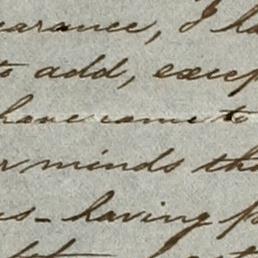 earance, I ha
to add, excep
have come to
r minds tha
us - having p